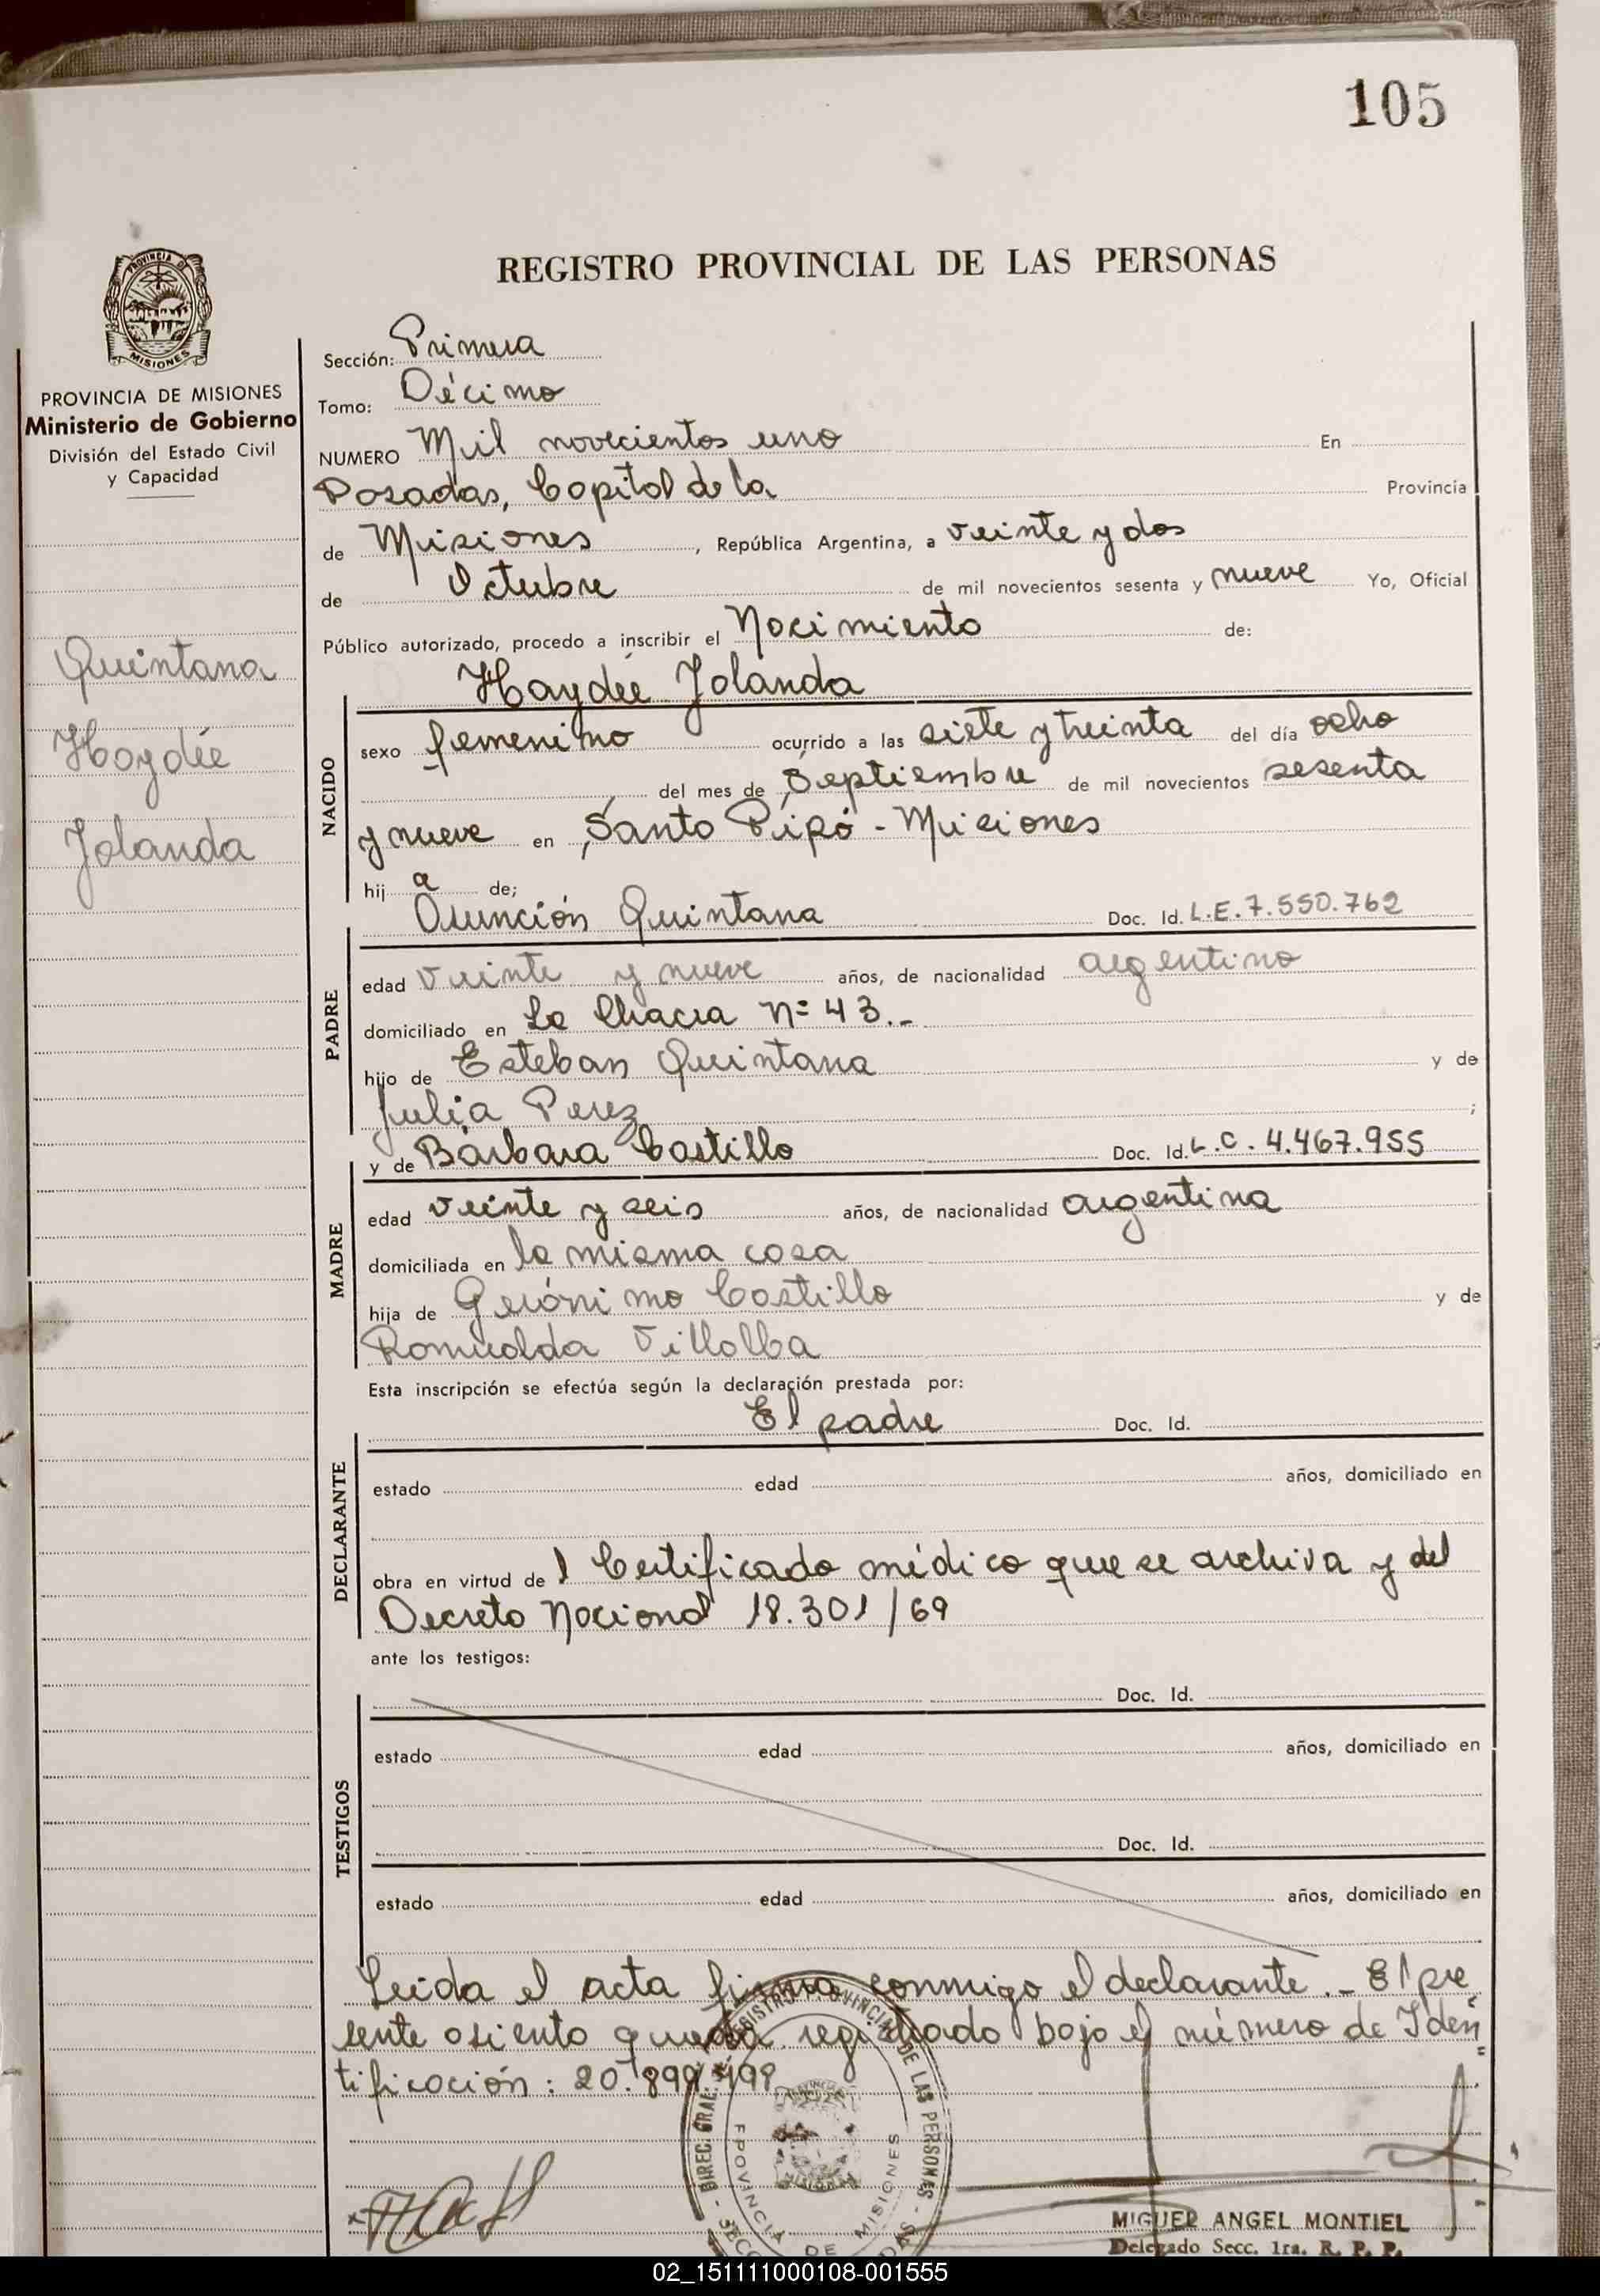 105
REGISTRO PROVINCIAL DE LAS PERSONAS
PROVINCIA DE MISIONES
Ministerio de Gobierno
División del Estado Civil
y Capacidad
Quintana
Haydée
Jolanda
Sección: Primera
Tomo: Décimo
NUMERO Mil novecientos uno En
Posadas, Capital de la Provincia
de Misiones, República Argentina, a veinte y dos
de Octubre de mil novecientos sesenta y nueve Yo, Oficial
Público autorizado, procedo a inscribir el Nacimiento de:
Haydée Jolanda
NACIDO
sexo femenino ocurrido a las siete y treinta del día ocho
del mes de Septiembre de mil novecientos sesenta
y nueve en Santo Pipó - Misiones
hij a de;
Asunción Quintana Doc. Id. L.E. 7.550.762
PADRE
edad veinte y nueve años, de nacionalidad argentino
domiciliado en La Chacra Nº 43.-
hijo de Esteban Quintana y de
Julia Perez ;
y de Bárbara Castillo Doc. Id. L.C. 4.467.955
MADRE
edad veinte y seis años, de nacionalidad argentina
domiciliada en la misma casa
hija de Gerónimo Castillo y de
Romualda Villalba
Esta inscripción se efectúa según la declaración prestada por:
El padre Doc. Id.
DECLARANTE
estado edad años, domiciliado en
obra en virtud de l Certificado médico que se archiva y del
Decreto Nacional 18.301/69
ante los testigos:
Doc. Id.
TESTIGOS
estado edad años, domiciliado en
Doc. Id.
estado edad años, domiciliado en
Leida el acta firma conmigo el declarante.- El pre
sente asiento queda registrado bajo el número de Iden
tificación: 20.899.498
DIREC. GRAL. REGISTRO PROVINCIAL DE LAS PERSONAS
PROVINCIA DE MISIONES
MIGUEL ANGEL MONTIEL
Delegado Secc. 1ra. R. P. P.
02_151111000108-001555